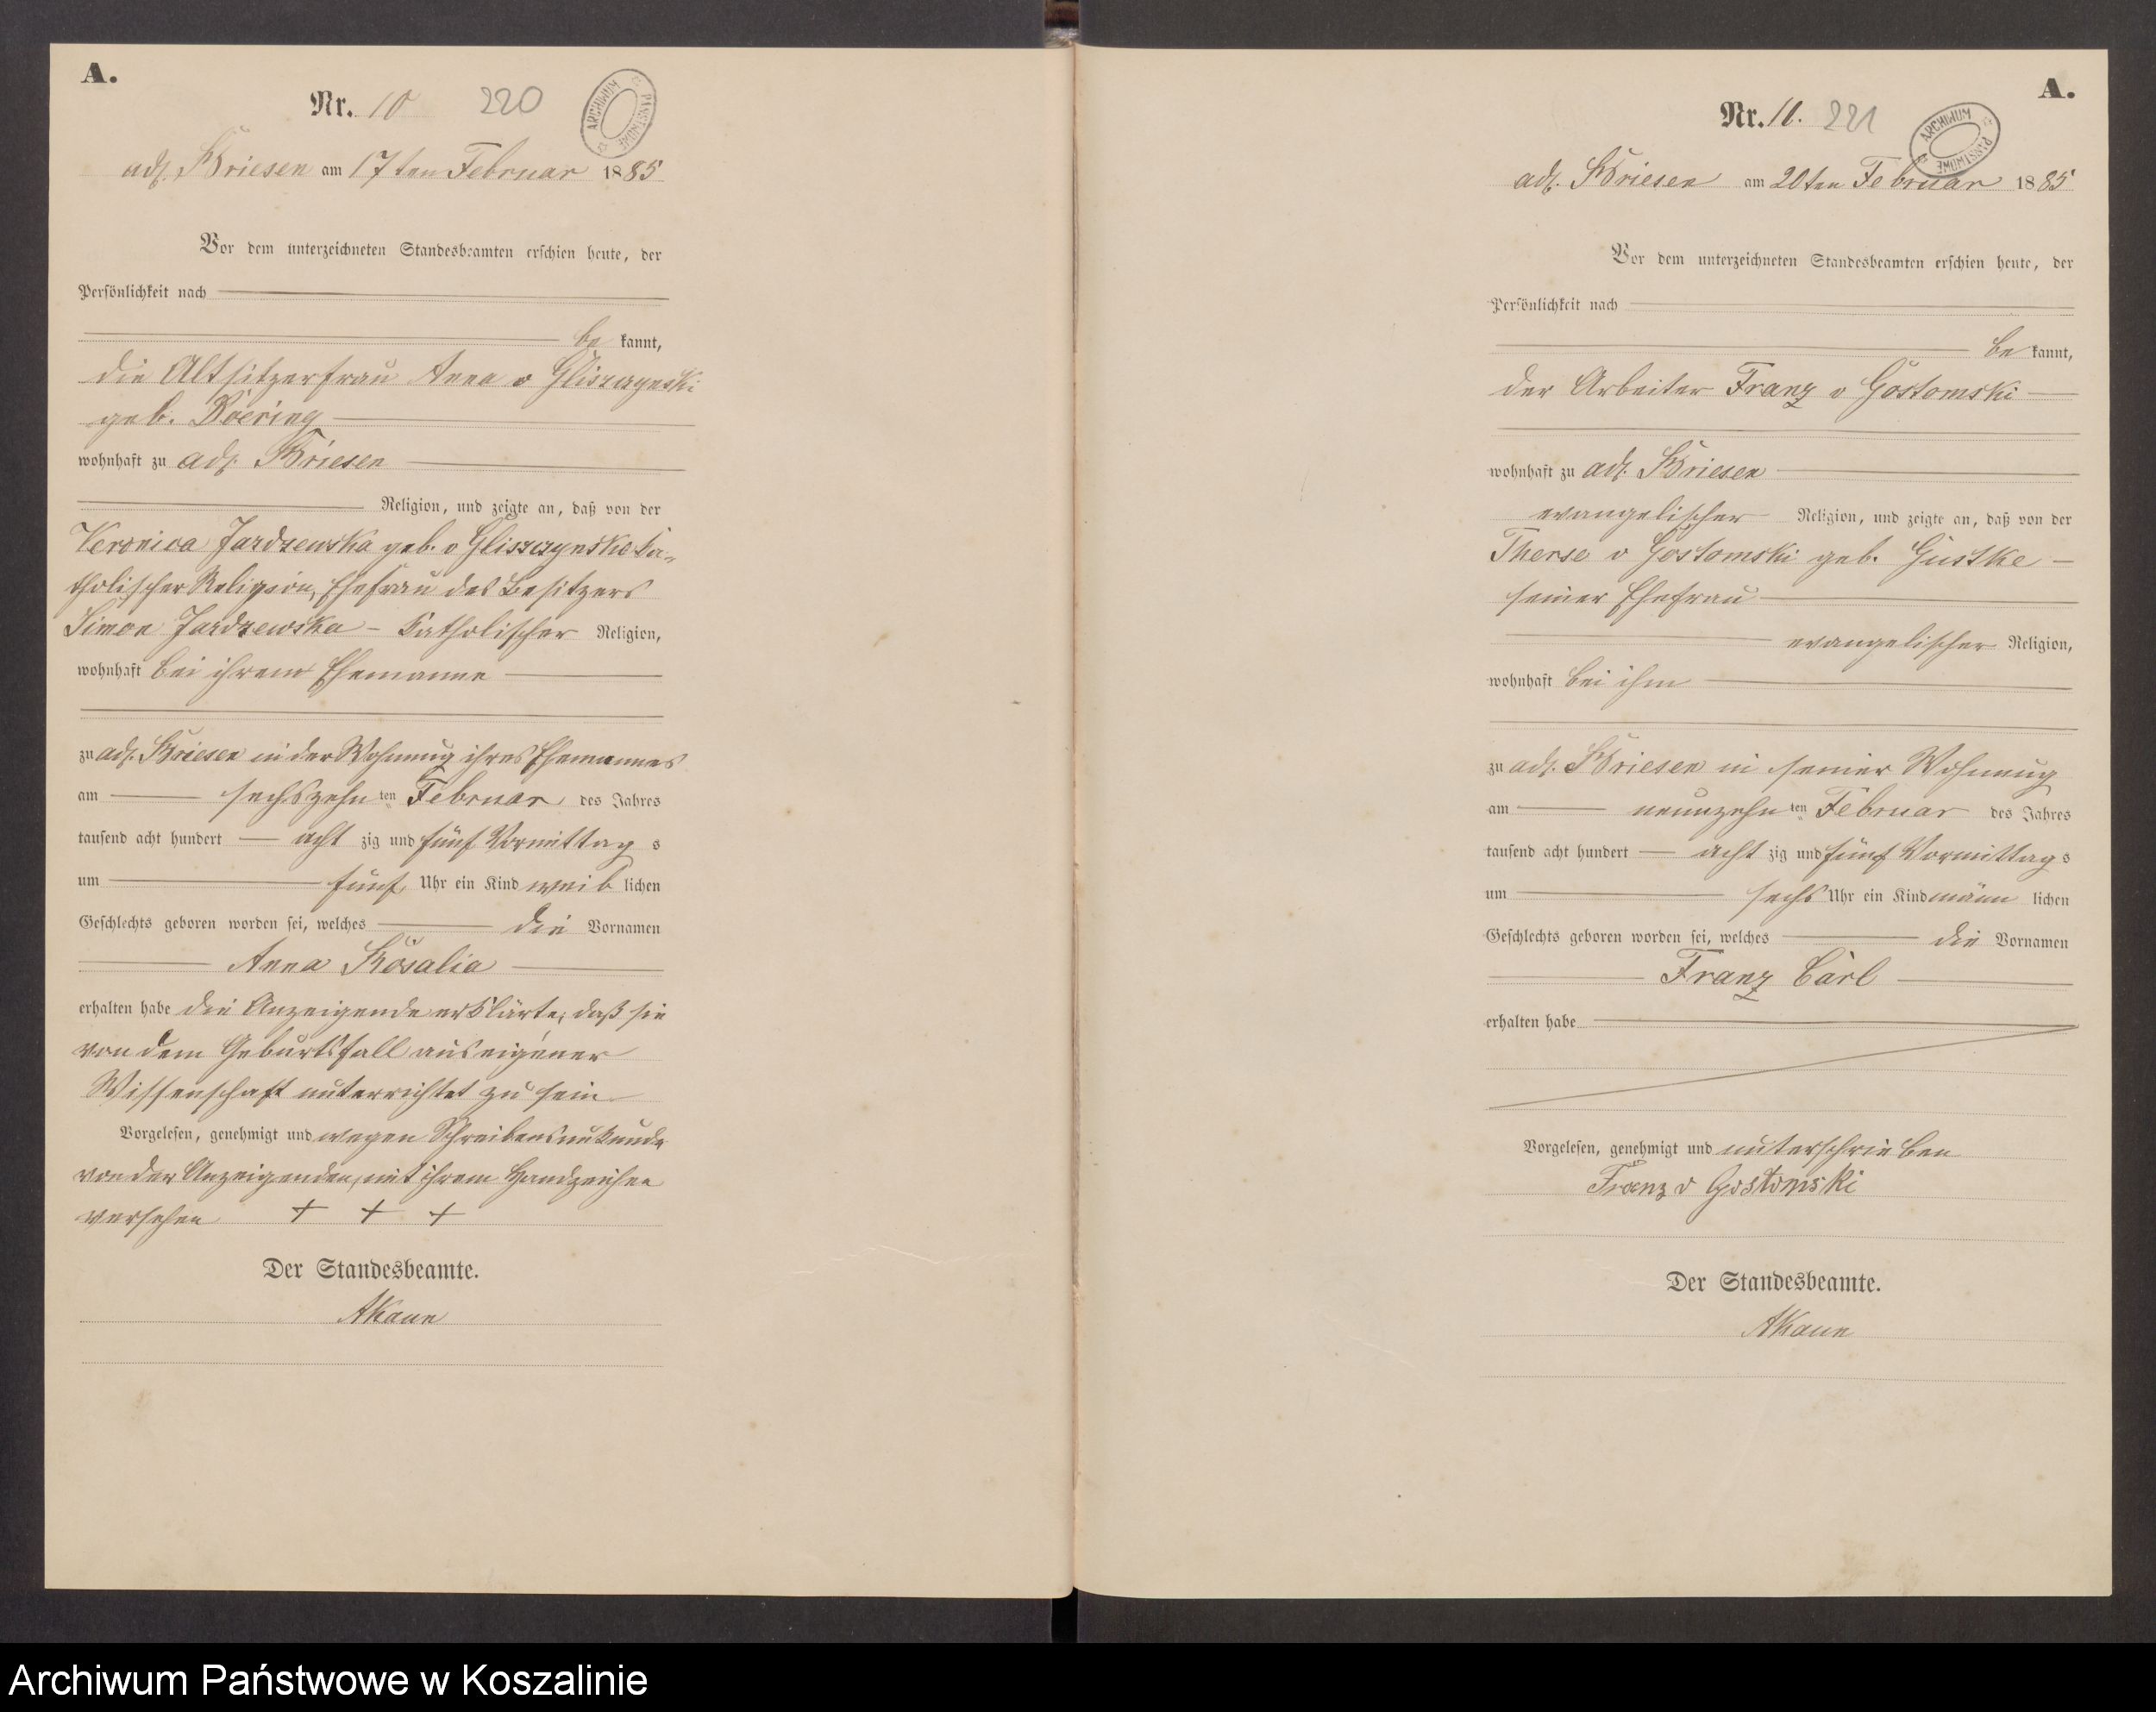 A.
Nr. 10 220
ARCHIWUM PAŃSTWOWE
adl. Briesen am 17ten Februar 1885
Vor dem unterzeichneten Standesbeamten erschien heute, der
Persönlichkeit nach
be kannt,
die Altsitzerfrau Anna v Gliszczynski
geb. Doering
wohnhaft zu adl. Briesen
Religion, und zeigte an, daß von der
Veronica Jardzewska geb. v Gliszczynski ka-
tholischer Religion, Ehefrau des Besitzers
Simon Jardzewska - katholischer Religion,
wohnhaft bei ihrem Ehemanne
zu adl. Briesen in der Wohnung ihres Ehemannes
am sechszehn ten Februar des Jahres
tausend acht hundert acht zig und fünf Vormittag s
um fünf Uhr ein Kind weib lichen
Geschlechts geboren worden sei, welches die Vornamen
Anna Rosalia
erhalten habe die Anzeigende erklärte, daß sie
von dem Geburtsfall aus eigener
Wissenschaft unterrichtet zu sein
Vorgelesen, genehmigt und wegen Schreibensunkunde
von der Anzeigenden, mit ihrem Handzeichen
versehen + + +
Der Standesbeamte.
A.
Nr. 11. 221
ARCHIWUM PAŃSTWOWE
adl. Briesen am 20ten Februar 1885
Vor dem unterzeichneten Standesbeamten erschien heute, der
Persönlichkeit nach
be kannt,
der Arbeiter Franz v Gostomski
wohnhaft zu adl. Briesen
evangelischer Religion, und zeigte an, daß von der
Therse v Gostomski geb. Gustke
seiner Ehefrau
evangelischer Religion,
wohnhaft bei ihm
zu adl. Briesen in seiner Wohnung
am neunzehn ten Februar des Jahres
tausend acht hundert acht zig und fünf Vormittag s
um sechs Uhr ein Kind männ lichen
Geschlechts geboren worden sei, welches die Vornamen
Franz Carl
erhalten habe
Vorgelesen, genehmigt und unterschrieben
Franz v Gostomski
Der Standesbeamte.
Archiwum Państwowe w Koszalinie